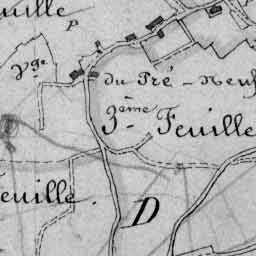 euille
P
Vge
du Pré-Neuf
3ème Feuille
euille.
D